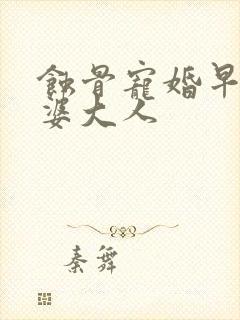 蚀骨宠婚早
婆大人
秦舞